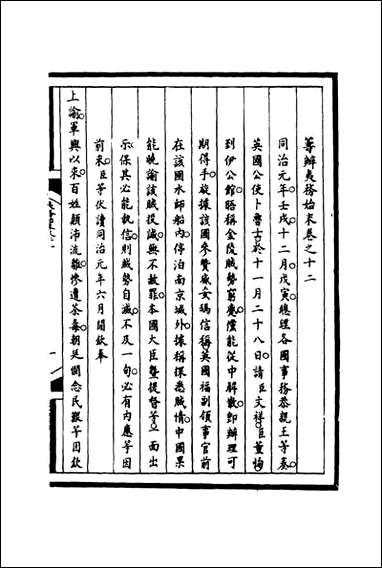 籌辦夷務始末卷之十二
同治元年壬戌十二月戊寅總理各國事務恭親王等奏
英國公使卜魯士於十一月二十八日請臣文祥臣董恂
到伊公館晤稱金陵賊勢窮蹙儻能從中解散即辦理可
期得手旋據該國參贊威妥瑪信稱英國福副領事官前
在該國水師船內停泊南京城外據稱探悉賊情中國果
能曉諭該賊投誠與不赦罪本國大臣暨提督等一面出
示保其必能執信則賊勢自滅不及一旬必有內應等因
前來臣等伏讀同治元年六月間欽奉
上諭軍興以來百姓顛沛流離慘遭荼毒朝廷憫念民艱等因欽